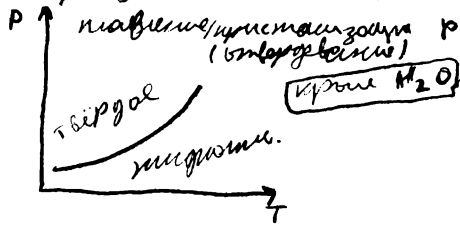 P плавление/кристаллизация P
(отвердевание)
кроме H₂O
твёрдое
жидкость.
T